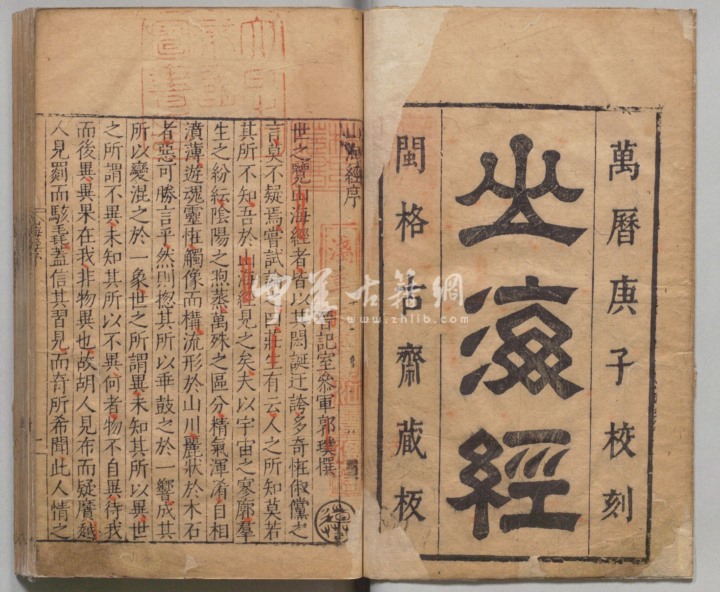 萬曆庚子校刻
山海經
閩格古齋蔵板
山海經序
晉記室參軍郭璞撰
世之覽山海經者皆以其閎誕迂誇多奇恠俶儻之
言莫不疑焉嘗試論之曰莊生有云人之所知莫若
其所不知吾於山海經見之矣夫以宇宙之寥廓羣
生之紛紜陰陽之煦蒸萬殊之區分精氣渾淆自相
濆薄遊魂靈恠觸像而構流形於山川麗狀於木石
者惡可勝言乎然則揔其所以乖鼓之於一響成其
所以變混之於一象世之所謂異未知其所以異世
之所謂不異未知其所以不異何者物不自異待我
而後異異果在我非物異也故胡人見布而疑黂越
人見罽而駭毳蓋信其習見而奇所希聞此人情之
中華古籍網
www.zhlib.com